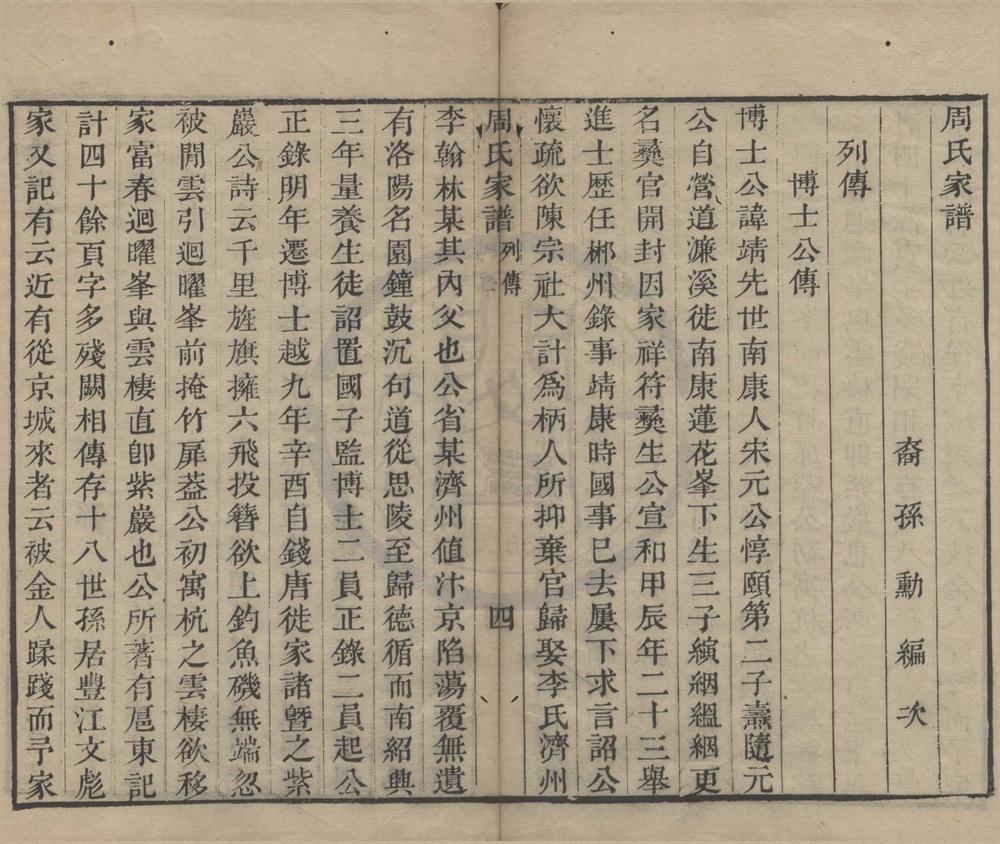 周氏家譜
裔孫勳編次
列傳
博士公傳
博士公諱靖先世南康人宋元公惇頤第二子燾隨元
公自營道濂溪徙南康蓮花峯下生三子縯絪縕絪更
名彛官開封因家祥符彛生公宣和甲辰年二十三舉
進士歷任郴州錄事靖康時國事已去屢下求言詔公
懷疏欲陳宗社大計為柄人所抑棄官歸娶李氏濟州
周氏家譜 列傳 四
李翰林某其內父也公省某濟州值汴京陷蕩覆無遺
有洛陽名園鐘鼓沉句道從思陵至歸德循而南紹興
三年量養生徒詔置國子監博士二員正錄二員起公
正錄明年遷博士越九年辛酉自錢唐徙家諸暨之紫
巖公詩云千里旌旗擁六飛投簪欲上釣魚磯無端忽
被閒雲引迴曜峯前掩竹扉葢公初寓杭之雲棲欲移
家富春迴曜峯與雲棲直卽紫巖也公所著有扈東記
計四十餘頁字多殘闕相傳存十八世孫居豐江文彪
家又記有云近有從京城來者云被金人蹂踐而予家